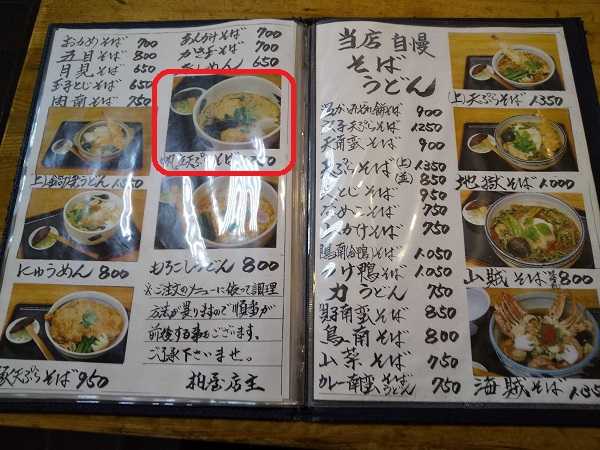 おかめそば 700
五目そば 800
月見そば 650
玉子とじそば 650
肉南そば 750
あんかけそば 700
かき玉そば 700
650
天ぷらそば
上鍋焼うどん
にゅうめん 800
もろこしうどん 800
天ぷらそば 950
※ご注文のメニューに依って調理
方法が異りますので順番が
前後する事もございます。
ご了承下さいませ。
柏屋店主
当店自慢
そば
うどん
900
天ぷらそば 1250
天南蛮そば 900
天ぷらそば(上) 1350
(並) 850
とじそば 950
そば 950
かけそば 750
そば 1,050
つけ鴨そば 1,050
力うどん 750
南蛮そば 850
鳥南そば 800
山菜そば 750
カレー南蛮 そば うどん 750
(上)天ぷらそば 1350
地獄そば 1000
山賊そば 800
海賊そば 135